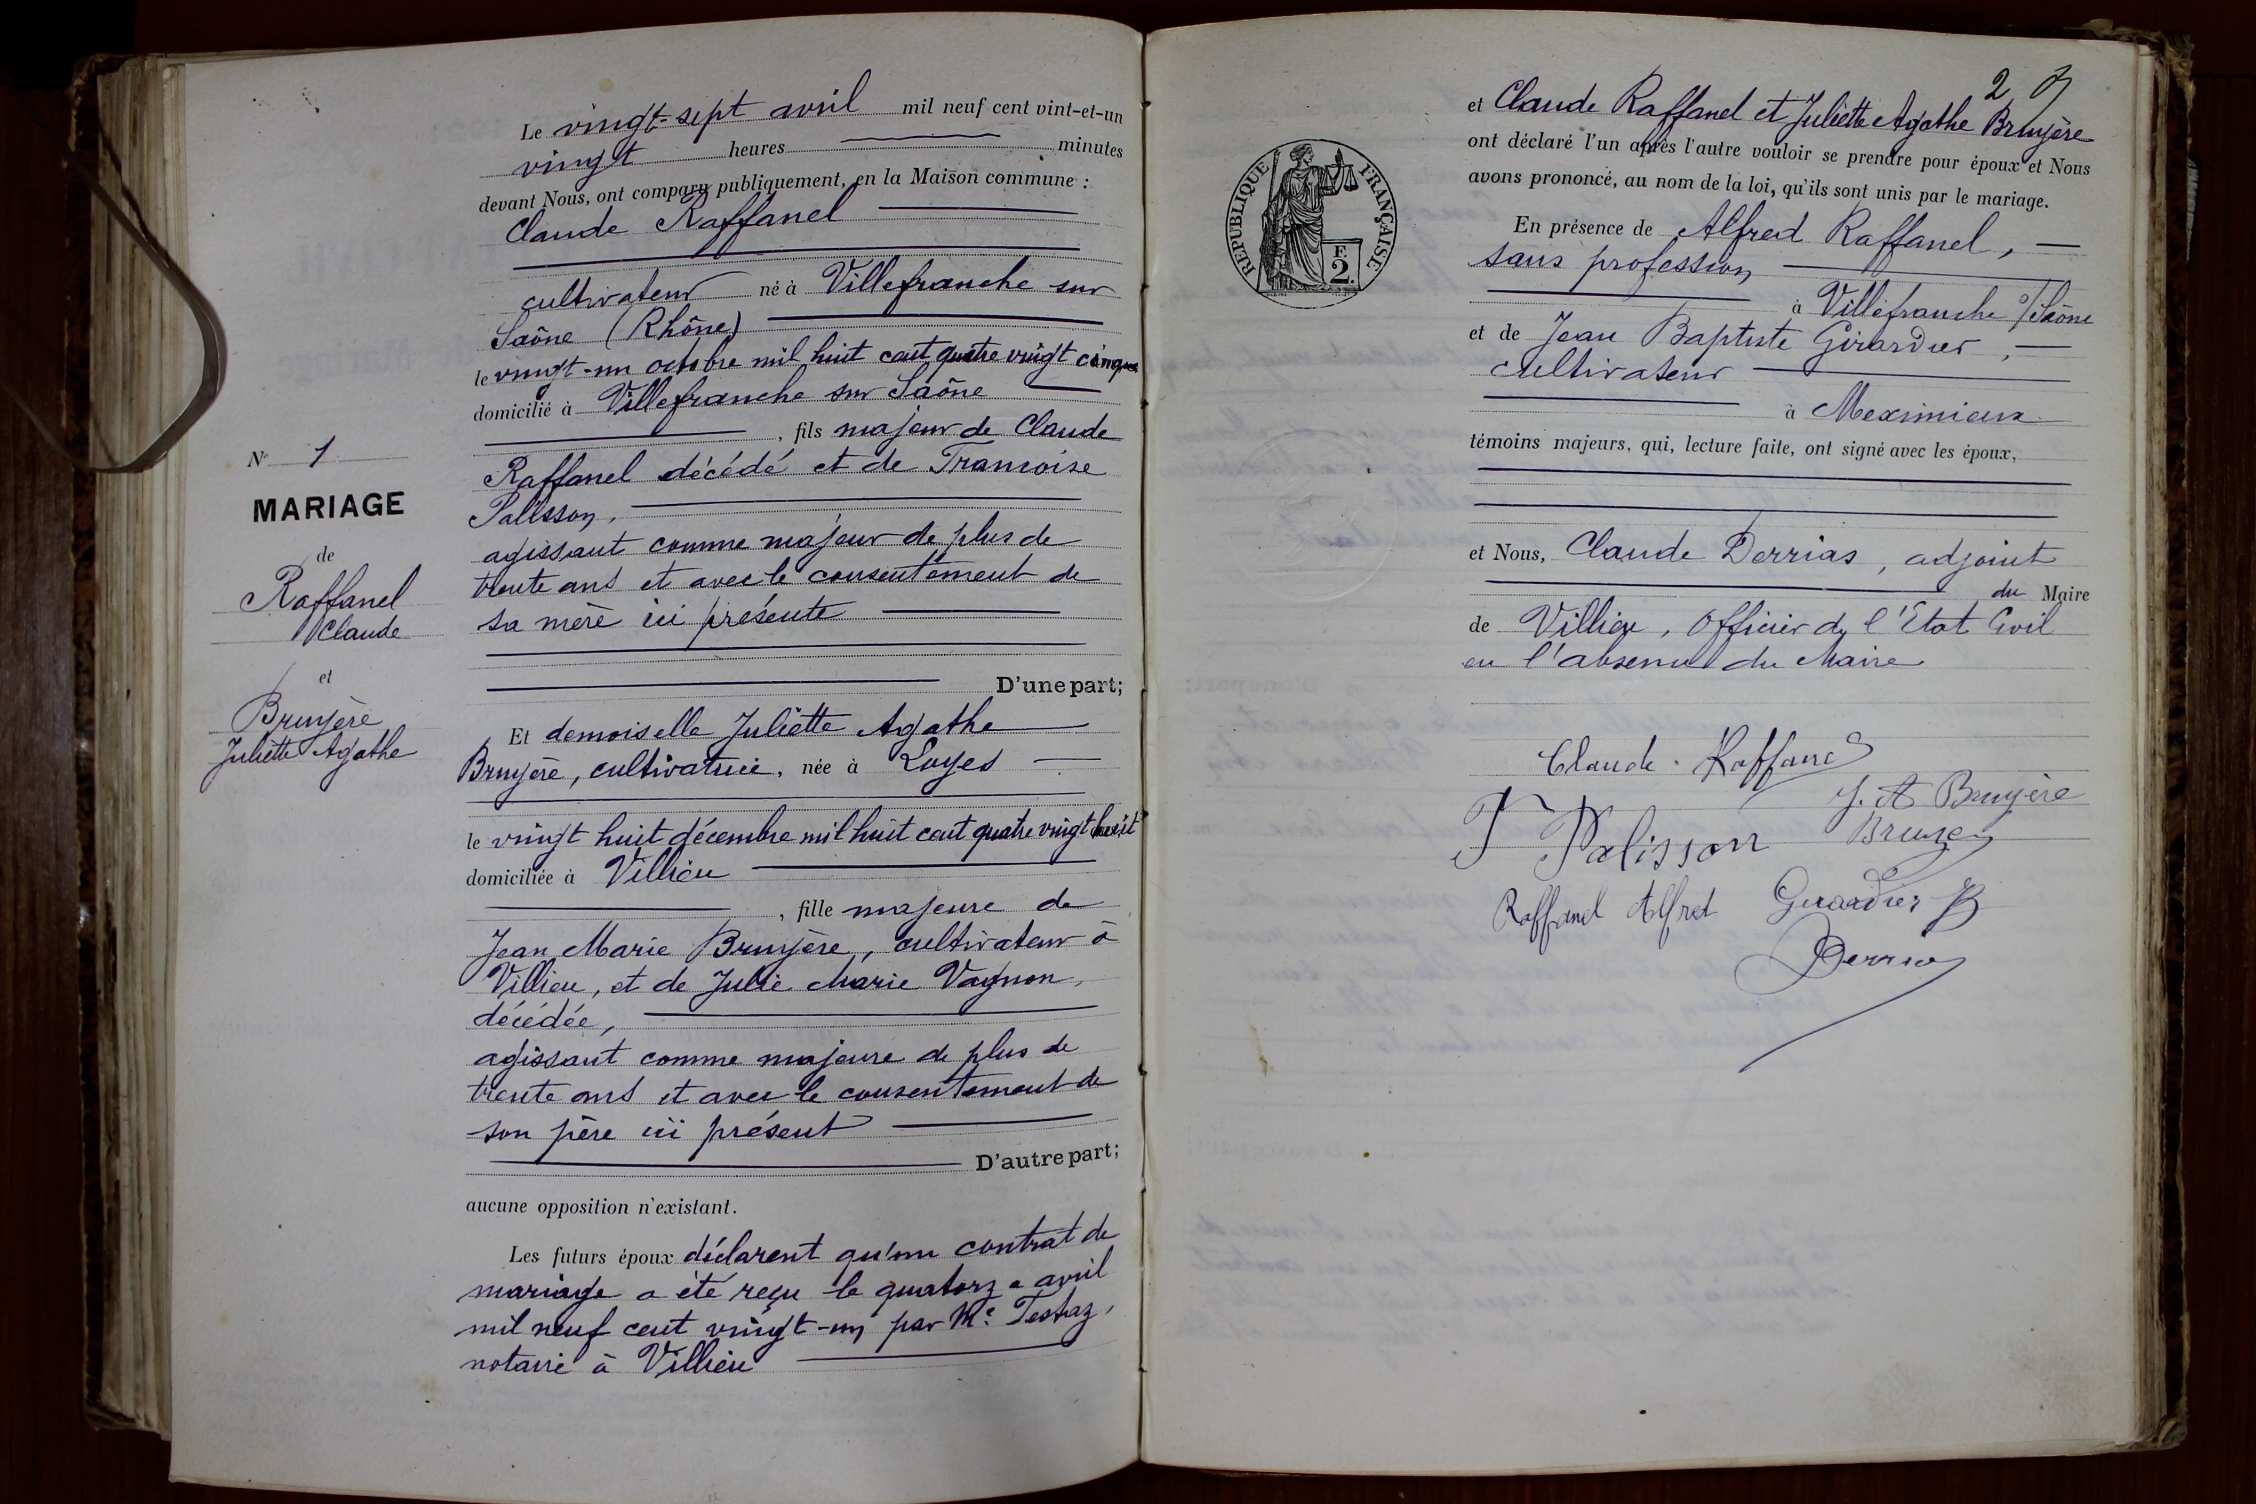 Le vingt-sept avril mil neuf cent vint-et-un
vingt heures minutes
devant Nous, ont comparu publiquement, en la Maison commune :
Claude Raffanel
cultivateur né à Villefranche sur
Saône (Rhône)
le vingt-un octobre mil huit cent quatre vingt cinq
domicilié à Villefranche sur Saône
, fils majeur de Claude
Raffanel décédé et de Francoise
Palisson,
agissant comme majeur de plus de
trente ans et avec le consentement de
sa mère ici présente
D'une part;
N° 1
MARIAGE
de
Raffanel
Claude
et
Bruyère
Juliette Agathe
Et demoiselle Juliette Agathe
Bruyère, cultivatrice, née à Loyes
le vingt huit décembre mil huit cent quatre vingt huit
domiciliée à Villieu
, fille majeure de
Jean Marie Bruyère, cultivateur à
Villieu, et de Julie Marie Vagnon,
décédée,
agissant comme majeure de plus de
trente ans et avec le consentement de
son père ici présent
D'autre part;
aucune opposition n'existant.
Les futurs époux déclarent qu'un contrat de
mariage a été reçu le quatorze avril
mil neuf cent vingt-un par Me Testaz,
notaire à Villieu
2
RÉPUBLIQUE FRANÇAISE
F.
2.
et Claude Raffanel et Juliette Agathe Bruyère
ont déclaré l'un après l'autre vouloir se prendre pour époux et Nous
avons prononcé, au nom de la loi, qu'ils sont unis par le mariage.
En présence de Alfred Raffanel,
sans profession
à Villefranche s/Saône
et de Jean Baptiste Girardier,
cultivateur
à Meximieux
témoins majeurs, qui, lecture faite, ont signé avec les époux,
et Nous, Claude Derrias, adjoint
du Maire
de Villieu, Officier de l'Etat Civil
en l'absence du Maire
Claude Raffanel
J. A Bruyère
F Palisson
Raffanel Alfret Girardier JB
Derrias